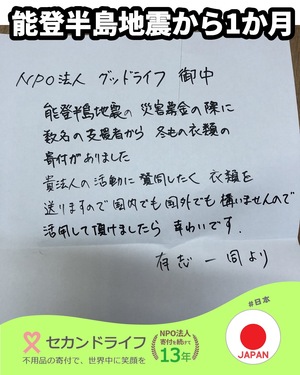 能登半島地震から1か月
NPO法人 グッドライフ 御中
能登半島地震の災害募金の際に
数名の支援者から 冬もの衣類の
寄付がありました
貴法人の活動に賛同したく 衣類を
送りますので国内でも国外でも構いませんので
活用して頂けましたら 幸いです.
有志一同より
セカンドライフ
不用品の寄付で、世界中に笑顔を
NPO法人
寄付を続けて
13年
#日本
JAPAN